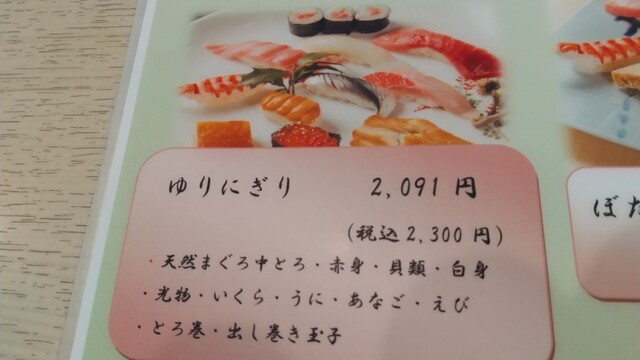 ゆりにぎり 2,091 円
(税込 2,300 円)
・天然まぐろ中とろ・赤身・貝類・白身
・光物・いくら・うに・あなご・えび
・とろ巻・出し巻き玉子
ぼた